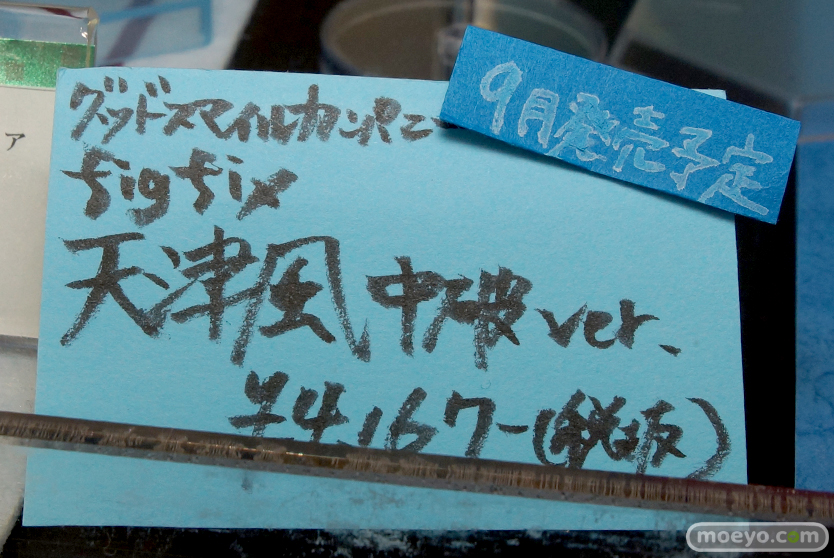 グッドスマイルカンパニー
9月発売予定
figfix
天津風 中破ver.
¥4,167-(税抜)
ア
moeyo.com